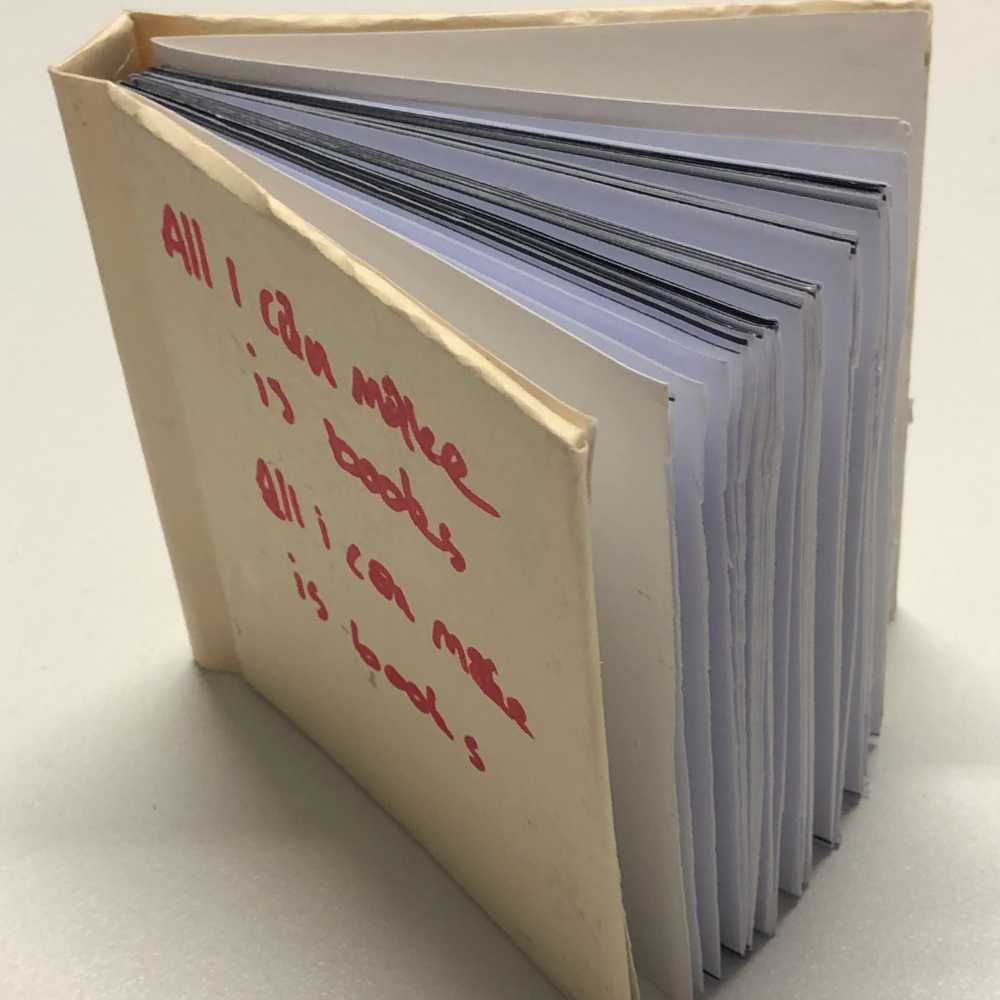 All I can make
is books
All i can make
is books